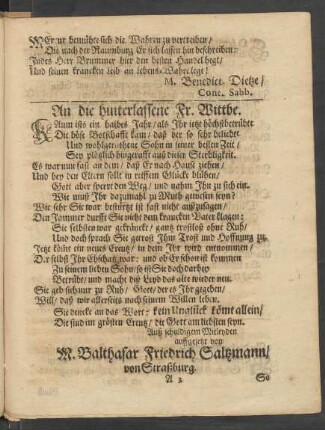 Er nur bemühte sich die Wahren zu vertreiben /
Die nach der Naumburg Er sich lassen hin beschreiben:
Indes Herr Brummer hier den besten Handel hegt /
Und seinen krancken Leib an lebens-Wahre legt!
M. Benedict. Dietze /
Conc. Sabb.
An die hinterlassene Fr. Wittbe.
Kaum ists ein halbes Jahr / als Ihr ietzt höchstbetrübte
Die böse Botschafft kam / daß der so sehr beliebte
Und wohlgerathene Sohn in seiner besten Zeit /
Sey plötzlich hingerafft auß dieser Sterbligkeit.
Es war nun fast an dem / daß Er nach Hause ziehen /
Und bey den Eltern solt in reiffem Glücke blühen /
Gott aber sperrt den Weg / und nahm Ihn zu sich ein.
Wie muß Ihr dazumahl zu Muth gewesen seyn?
Wie sehr Sie war bestürtzt ist fast nicht außzusagen /
Den Jammer durffte Sie nicht dem krancken Vater klagen:
Sie selbsten war gekränckt / gantz trostloß ohne Ruh /
Und doch sprach Sie getrost Ihm Trost und Hoffnung zu.
Jetzt blutet ein neues Creutz / in dem Ihr wird entnommen /
Der selbst Ihr Ehschatz war: und ob Er schon ist kommen
Zu seinem lieben Sohn / so ist Sie doch darbey
Betrübt / und macht diß Leyd das alte wieder neu.
Sie geb sich nur zu Ruh / Gott / der es Ihr gegeben /
Will / daß wir allerseits nach seinem Willen leben.
Sie dencke an das Wort: kein Unglück kömt allein /
Die sind im grösten Creutz / die Gott am liebsten seyn.
Auß schuldigem Mitleyden
auffgesetzt von
M. Balthasar Friedrich Saltzmann /
von Straßburg.
A 3 So